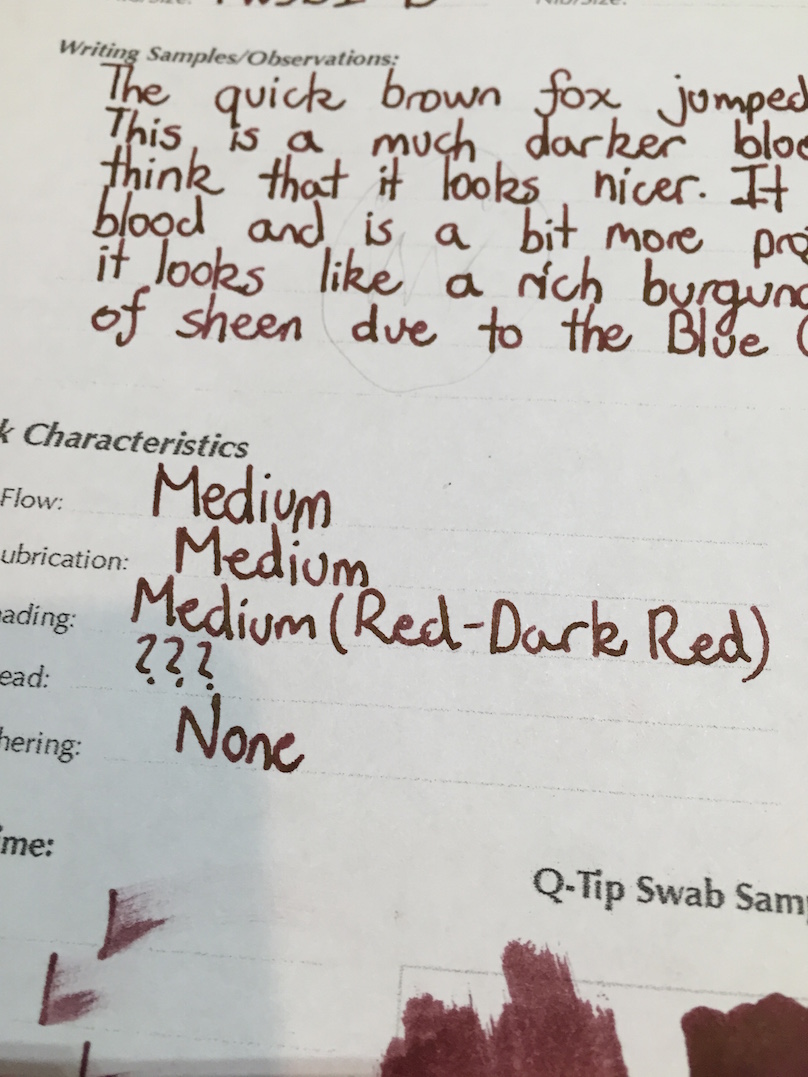 Writing Samples/Observations:
The quick brown fox jumped
This is a much darker
think that it looks nicer. It
blood and is a bit more
it looks like a rich
of sheen due to the Blue
Characteristics
Flow: Medium
ubrication: Medium
ading: Medium (Red-Dark Red)
ead: ???
hering: None
me:
Q-Tip Swab Sam